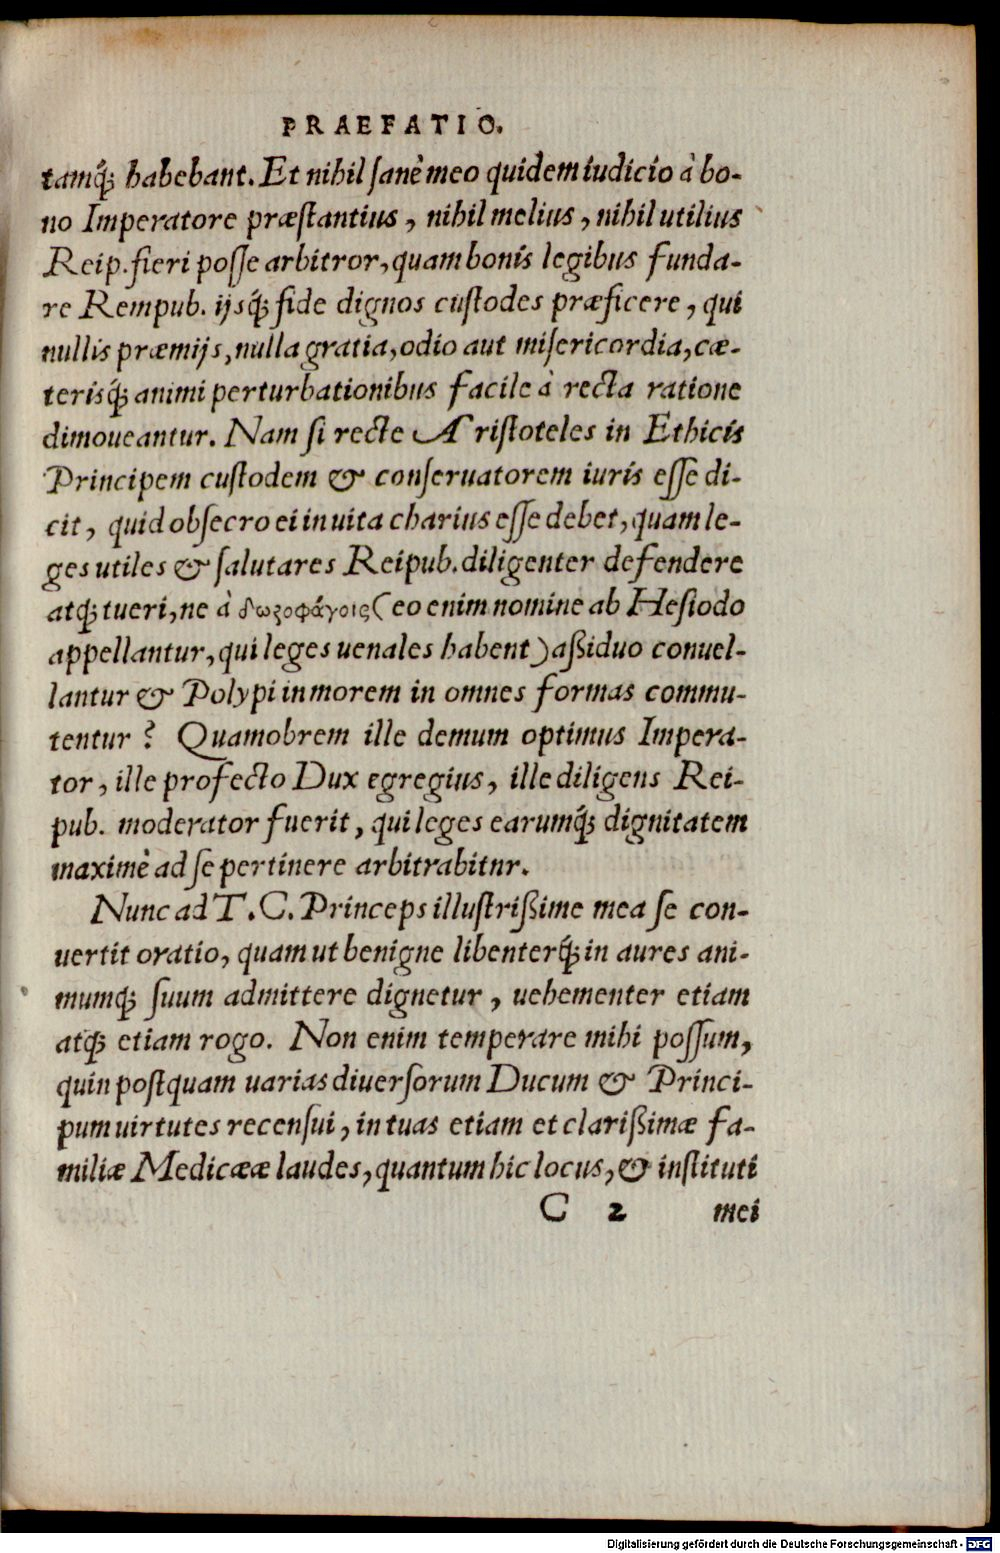 PRAEFATIO.
tamq́; habebant. Et nihil ſanè meo quidem iudicio à bo-
no Imperatore præſtantius, nihil melius, nihil utilius
Reip. fieri poſſe arbitror, quam bonis legibus funda-
re Rempub. ijsq́; fide dignos cuſtodes præficere, qui
nullis præmijs, nulla gratia, odio aut miſericordia, cæ-
terisq́; animi perturbationibus facile à recta ratione
dimoueantur. Nam ſi recte Ariſtoteles in Ethicis
Principem cuſtodem & conſeruatorem iuris eſſe di-
cit, quid obſecro ei in uita charius eſſe debet, quam le-
ges utiles & ſalutares Reipub. diligenter defendere
atq́; tueri, ne à δωροφάγοις (eo enim nomine ab Heſiodo
appellantur, qui leges uenales habent) aßiduo conuel-
lantur & Polypi in morem in omnes formas commu-
tentur? Quamobrem ille demum optimus Impera-
tor, ille profecto Dux egregius, ille diligens Rei-
pub. moderator fuerit, qui leges earumq́; dignitatem
maximè ad ſe pertinere arbitrabitnr.
Nunc ad T. C. Princeps illuſtrißime mea ſe con-
uertit oratio, quam ut benigne libenterq́; in aures ani-
mumq́; ſuum admittere dignetur, uehementer etiam
atq́; etiam rogo. Non enim temperare mihi poſſum,
quin poſtquam uarias diuerſorum Ducum & Princi-
pum uirtutes recenſui, in tuas etiam et clarißimæ fa-
miliæ Medicææ laudes, quantum hic locus, & inſtituti
C 2 mei
Digitalisierung gefördert durch die Deutsche Forschungsgemeinschaft - DFG